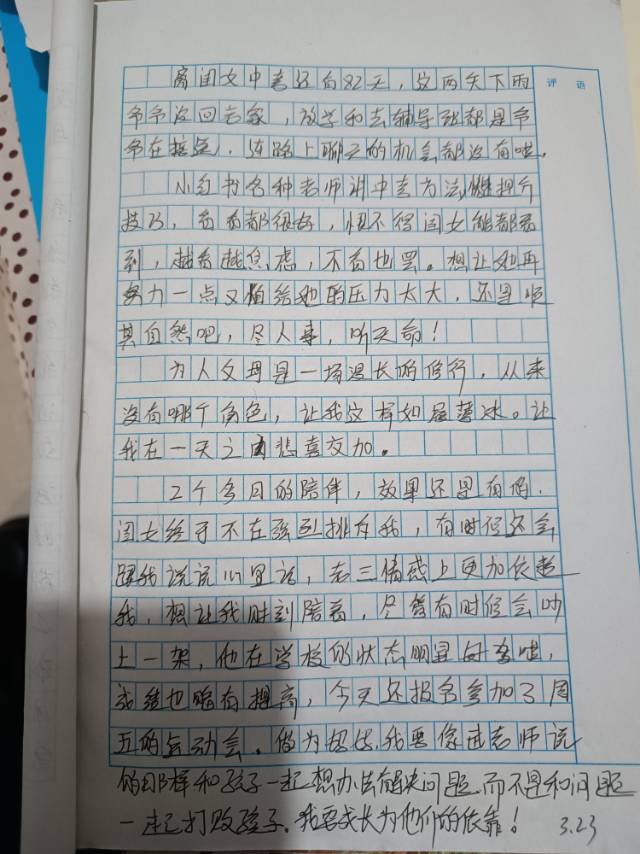 评 语
离闺女中考还有82天,这两天下雨
爷爷没回老家,放学和去辅导班都是爷
爷在接送,连路上聊天的机会都没有啦。
小红书各种老师讲中考方法,提分
技巧,看看都很好,恨不得闺女能都看
到,越看越焦虑,不看也罢。想让她再
努力一点又怕给她的压力太大,还是顺
其自然吧,尽人事,听天命!
为人父母是一场漫长的修行,从来
没有哪个角色,让我这样如履薄冰。让
我在一天之内悲喜交加。
2个多月的陪伴,效果还是有的.
闺女终于不在强烈排斥我,有时候还会
跟我说说心里话,老三情感上更加依赶
我,想让我时刻陪着,尽管有时候会吵
上一架,他在学校的状态明显好多啦,
成绩也略有提高,今天还报名参加了周
五的运动会。做为母亲我要像进老师说
的那样和孩子一起想办法解决问题,而不是和问题
一起打败孩子。我要成长为他们的依靠!
3.23